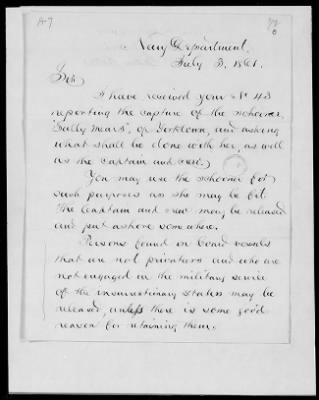 A-7
Navy Department,
July 3, 1861.
Sir,
I have received your No 43
reporting the capture of the schooner,
"Sally Mears", of Yorktown, and asking
what shall be done with her, as well
as the Captain and crew.
You may use the schooner for
such purposes as she may be fit.
The Captain and crew may be released
and put ashore somewhere.
Persons found on board vessels
that are not privateers and who are
not engaged in the military service
of the insurrectionary states may be
released, unless there is some good
reason for retaining them.